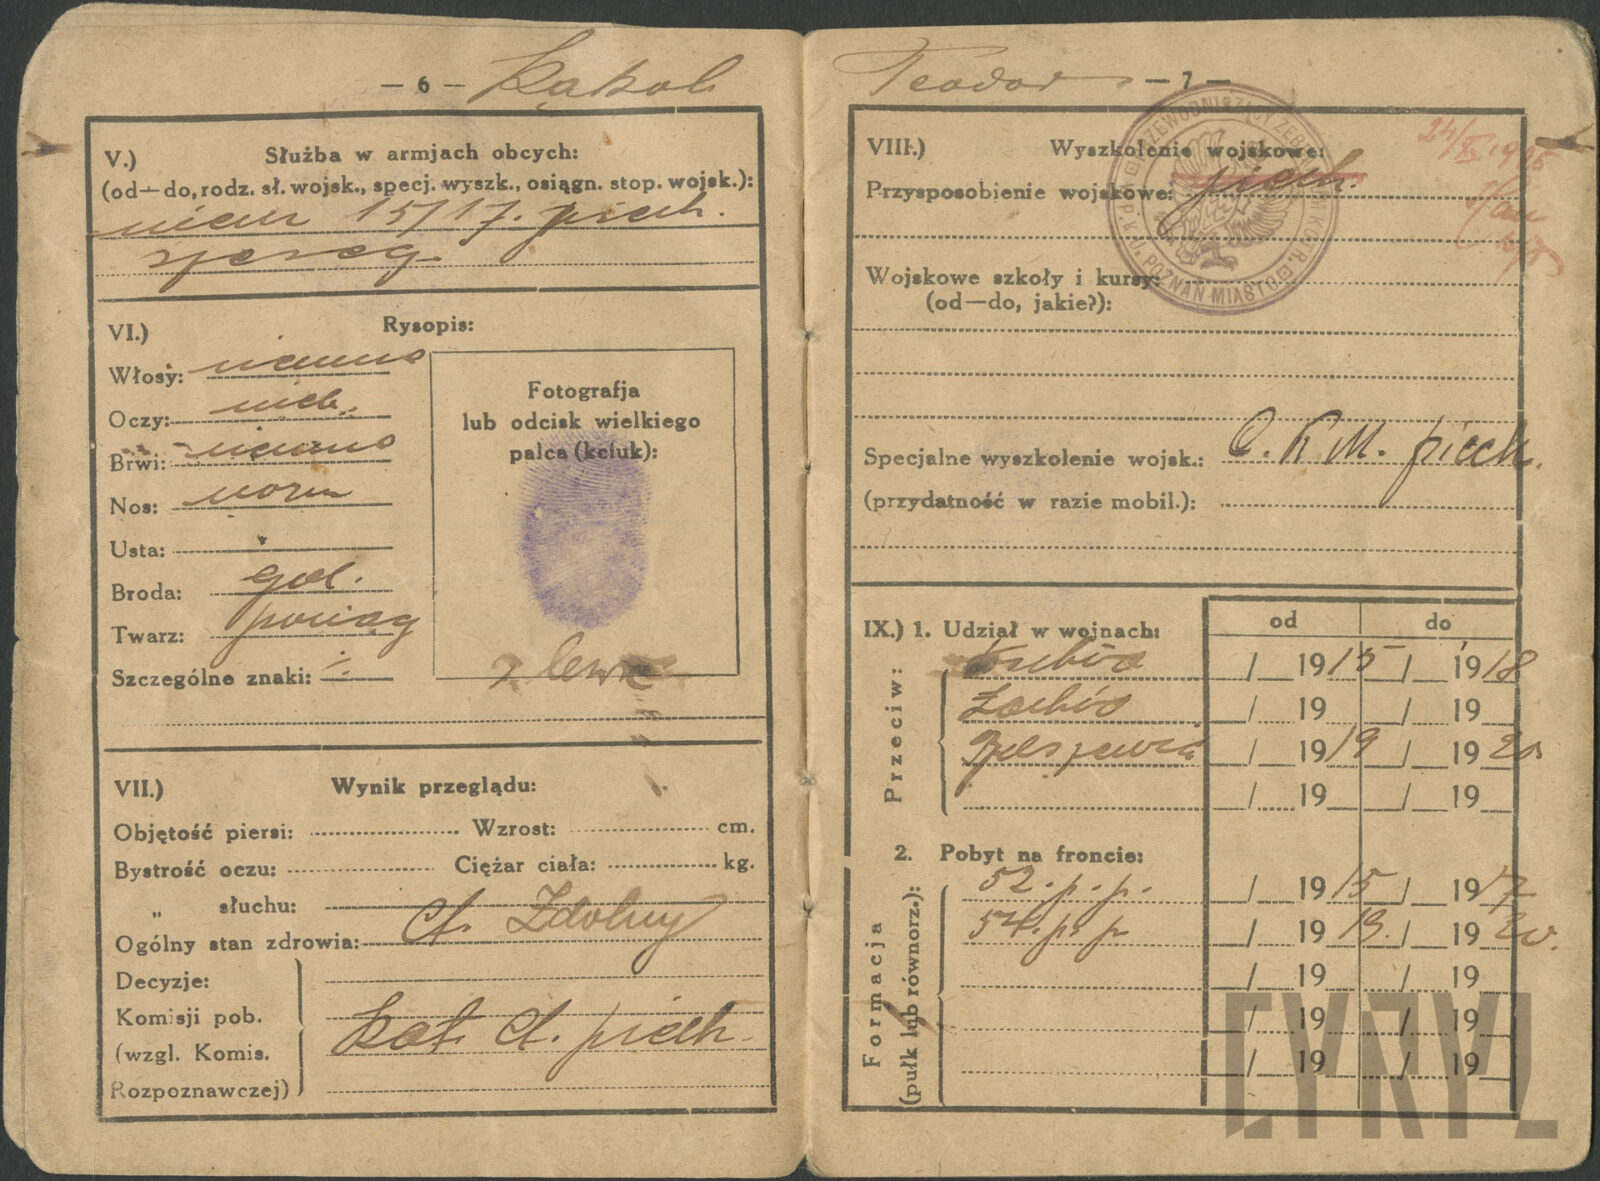 — 6 — Kąkol
V.) Służba w armjach obcych:
(od—do, rodz. sł. wojsk., specj. wyszk., osiągn. stop. wojsk.):
niem 15/17. piech.
szereg.
VI.) Rysopis:
Włosy:
Oczy: nieb.
Brwi:
Nos: norm
Usta:
Broda: gol.
Twarz: pociąg
Szczególne znaki: ÷
Fotografja
lub odcisk wielkiego
palca (kciuk):
z lewa
VII.) Wynik przeglądu:
Objętość piersi: Wzrost: cm.
Bystrość oczu: Ciężar ciała: kg.
„ słuchu:
Ogólny stan zdrowia: A. Zdolny
Decyzje:
Komisji pob.
(wzgl. Komis.
Rozpoznawczej)
Kat. A. piech.
Teodor — 7 —
VIII.) Wyszkolenie wojskowe:
Przysposobienie wojskowe: piech.
Wojskowe szkoły i kursy:
(od—do, jakie?):
POZNAŃ MIASTO
Specjalne wyszkolenie wojsk.: C. K. M. piech.
(przydatność w razie mobil.):
IX.) 1. Udział w wojnach: od do
Przeciw:
/ 1915 / 1918
/ 19 / 19
/ 1919 / 1920
/ 19 / 19
2. Pobyt na froncie:
Formacja
(pułk lub równorz.):
52. p. p. / 1915 / 1917
54. p. p. / 1919. / 1920.
/ 19 / 19
/ 19 / 19
/ 19 / 19
CYRYL